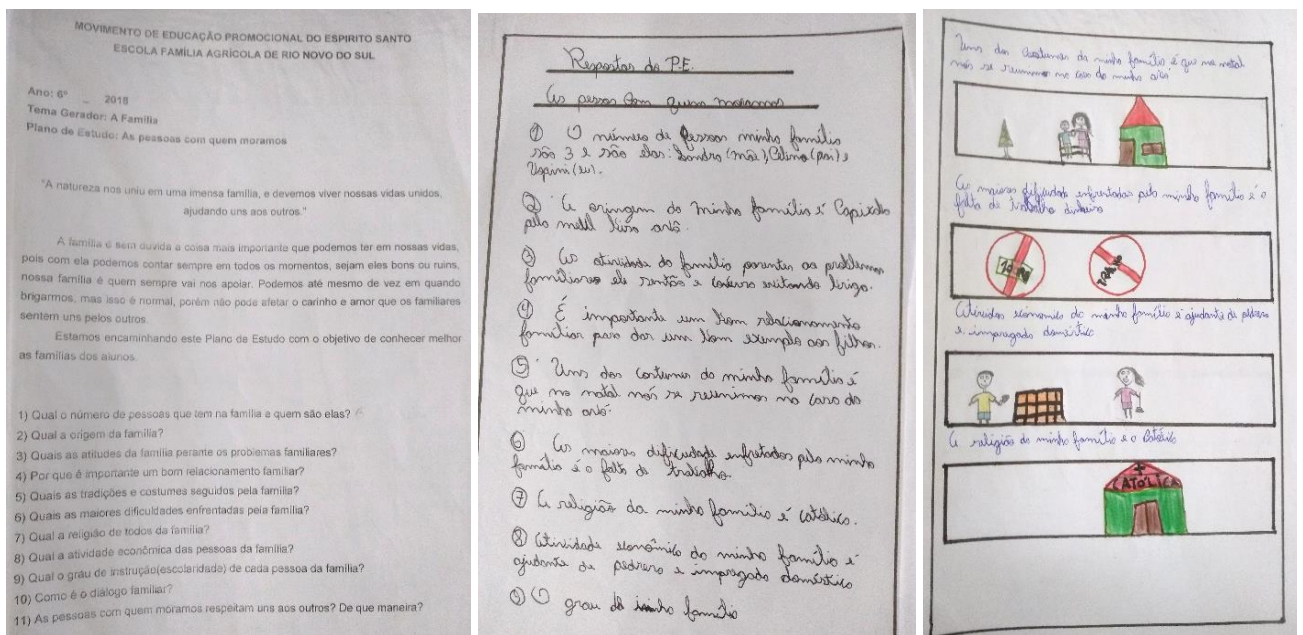 MOVIMENTO DE EDUCAÇÃO PROMOCIONAL DO ESPIRITO SANTO
ESCOLA FAMÍLIA AGRÍCOLA DE RIO NOVO DO SUL
Ano: 6º _ 2018
Tema Gerador: A Família
Plano de Estudo: As pessoas com quem moramos
"A natureza nos uniu em uma imensa família, e devemos viver nossas vidas unidos,
ajudando uns aos outros."
A família é sem duvida a coisa mais importante que podemos ter em nossas vidas,
pois com ela podemos contar sempre em todos os momentos, sejam eles bons ou ruins,
nossa família é quem sempre vai nos apoiar. Podemos até mesmo de vez em quando
brigarmos, mas isso é normal, porém não pode afetar o carinho e amor que os familiares
sentem uns pelos outros.
Estamos encaminhando este Plano de Estudo com o objetivo de conhecer melhor
as famílias dos alunos.
1) Qual o número de pessoas que tem na família e quem são elas?
2) Qual a origem da família?
3) Quais as atitudes da família perante os problemas familiares?
4) Por que é importante um bom relacionamento familiar?
5) Quais as tradições e costumes seguidos pela família?
6) Quais as maiores dificuldades enfrentadas pela família?
7) Qual a religião de todos da família?
8) Qual a atividade econômica das pessoas da família?
9) Qual o grau de instrução(escolaridade) de cada pessoa da família?
10) Como é o dialogo familiar?
11) As pessoas com quem moramos respeitam uns aos outros? De que maneira?
Respostas do P.E.
As pessoas com quem moramos
① O número de pessoas minha família
são 3 e são elas: Sandra (mãe), (pai) e
(eu).
② A oringem da minha família é
③ As atividade da família parentes os problemas
familiares ele e
④ É importante um bom relacionamento
familiar para dar um bom exemplo aos filhos.
⑤ Uns dos costumes da minha família é
que no natal nós se reunimos na casa da
minha avó.
⑥ As maiores dificuldade enfretados pela minha
família é a falta de trabalho.
⑦ A religião da minha família é católica.
⑧ Atividade econômica da minha família é
ajudante de pedrero e impregada doméstica
⑨ O grau da minha família
Uns dos costumes da minha família é que no natal
nós se reunimos na casa da minha avó
As maiores dificuldade enfrentadas pela minha família é a
falta de trabalho dinheiro
Atividade econômica da minha família é ajudante de pedrero
e impregada doméstica
A religião da minha família é a católica
CATÓLICA